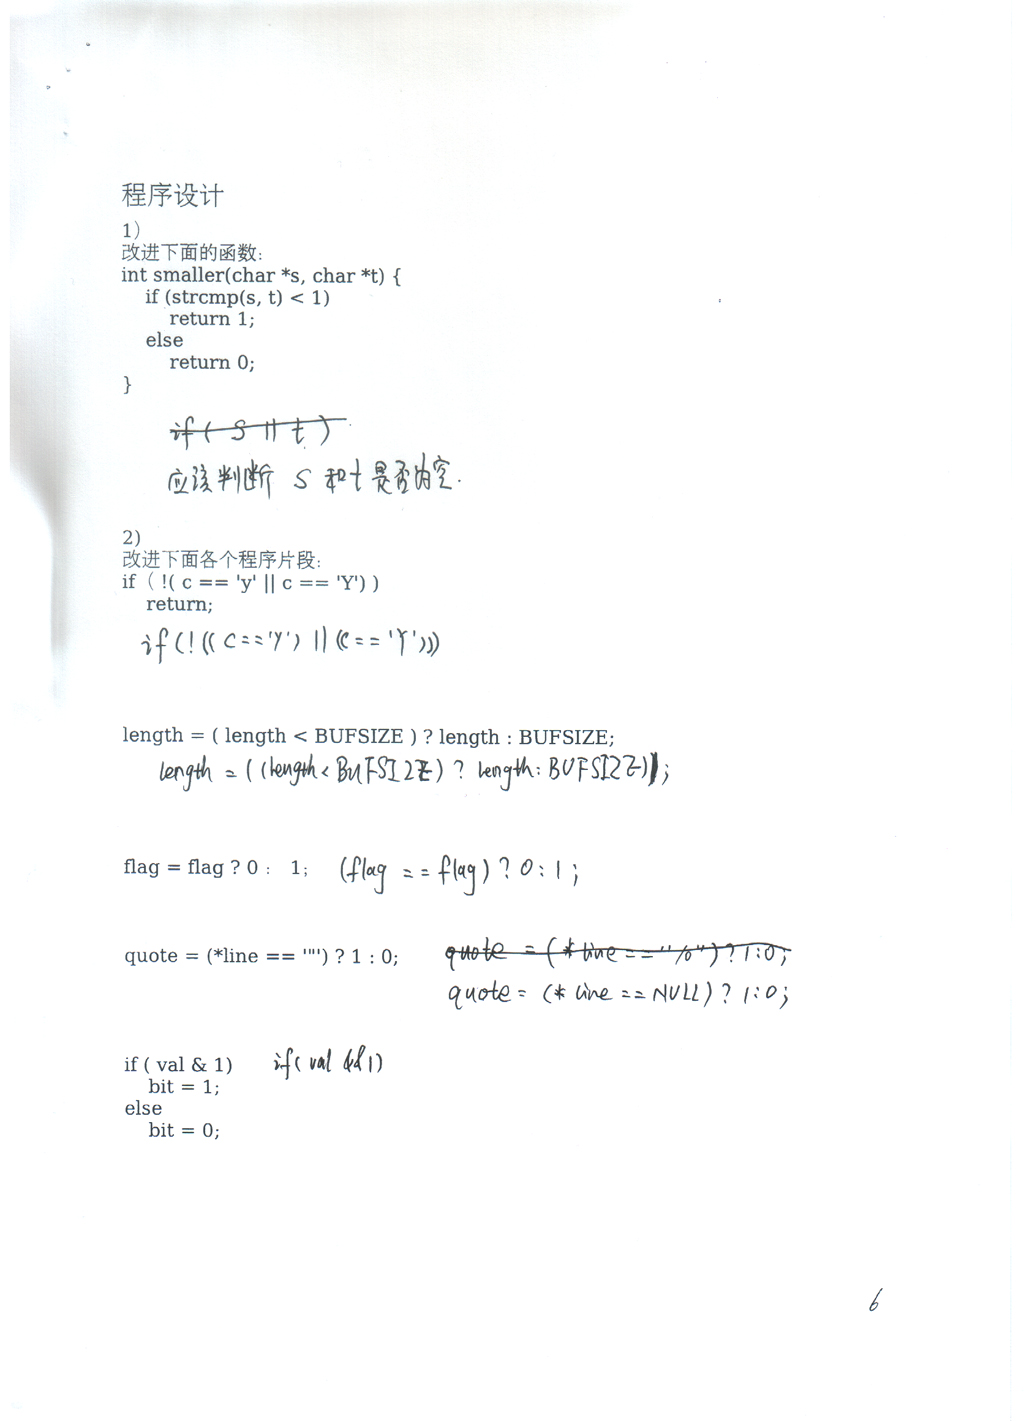 程序设计
1)
改进下面的函数:
int smaller(char *s, char *t) {
if (strcmp(s, t) < 1)
return 1;
else
return 0;
}
if ( S || t )
应该判断 S 和 t 是否为空.
2)
改进下面各个程序片段:
if ( !( c == 'y' || c == 'Y') )
return;
if (! (( c == 'y') || (c == 'Y')))
length = ( length < BUFSIZE ) ? length : BUFSIZE;
length = ( (length < BUFSIZE) ? length : BUFSIZE));
flag = flag ? 0 : 1; (flag == flag) ? 0 : 1 ;
quote = (*line == '"') ? 1 : 0; quote = (* line == "%") ? 1 : 0;
quote = (* line == NULL) ? 1 : 0;
if ( val & 1) if( val && 1)
bit = 1;
else
bit = 0;
6